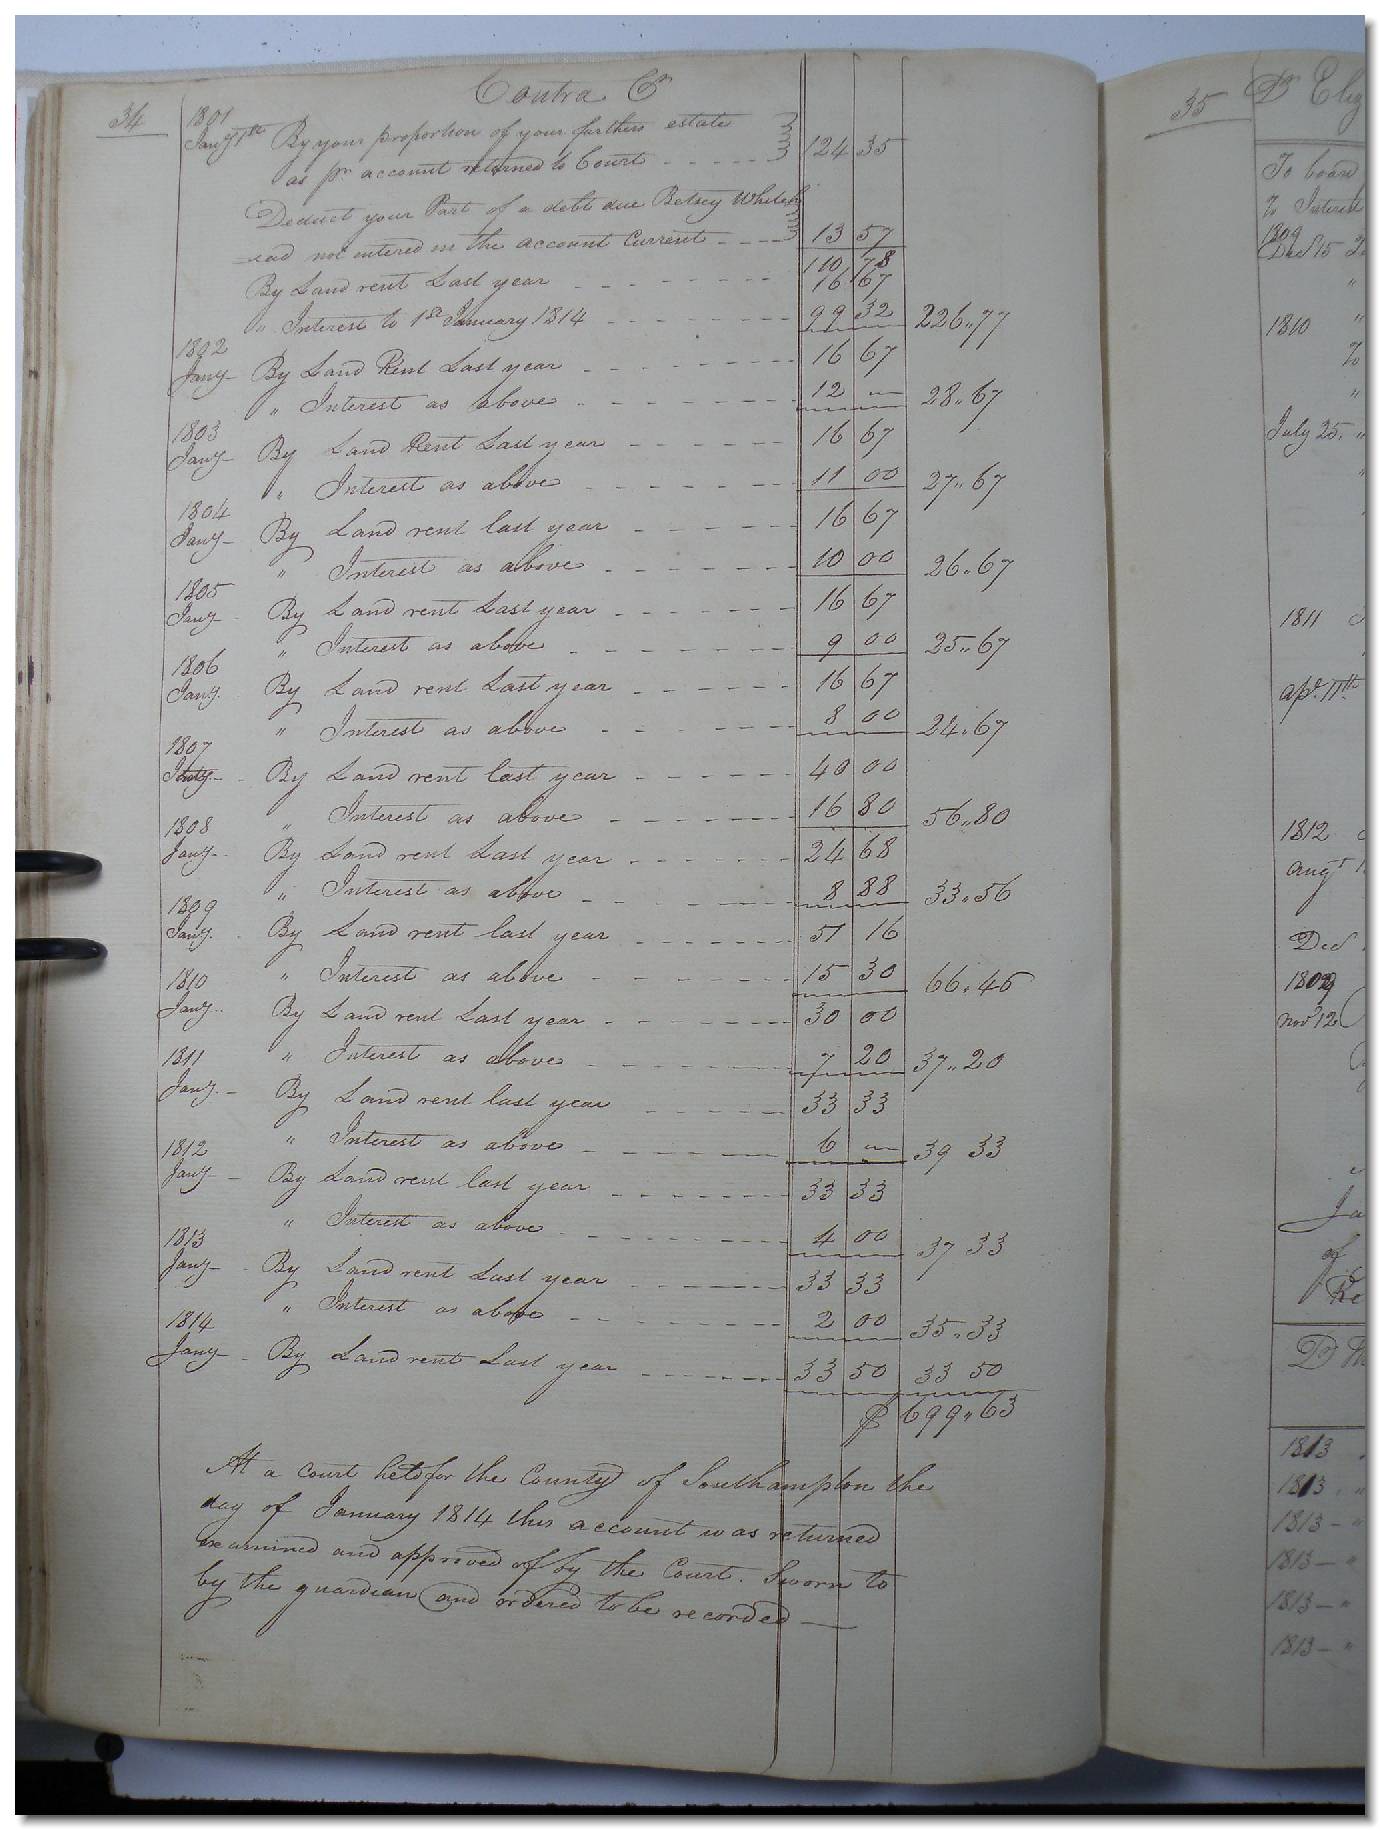 34
Contra Cr
1801
Jany 1st By your proportion of your farthers estate
as pr account returned to Court - - - - - 124 35
Deduct your Part of a debt due Betsey Whiteh
=ead not entered in the account Current - - - - 13 57
110 78
By Land rent Last year - - - - - - 16 67
" Interest to 1st January 1814 - - - - - - 99 32 226"77
1802
Jany - By Land Rent Last year - - - - - - 16 67
" Interest as above - - - - - - 12 — 28"67
1803
Jany - By Land Rent Last year - - - - - 16 67
" Interest as above - - - - - - 11 00 27"67
1804
Jany - By Land rent last year - - - - - 16 67
" Interest as above - - - - - - 10 00 26"67
1805
Jany - By Land rent Last year - - - - - 16 67
" Interest as above - - - - - - 9 00 25"67
1806
Jany. By Land rent Last year - - - - - 16 67
" Interest as above - - - - - - 8 00 24"67
1807
Jany - By Land rent last year - - - - - 40 00
" Interest as above - - - - - - 16 80 56"80
1808
Jany - By Land rent Last year - - - - - 24 68
" Interest as above - - - - - - 8 88 33"56
1809
Jany. By Land rent last year - - - - - 51 16
" Interest as above - - - - - - 15 30 66"46
1810
Jany - By Land rent Last year - - - - - 30 00
" Interest as above - - - - - - 7 20 37"20
1811
Jany - By Land rent last year - - - - - 33 33
" Interest as above - - - - - - 6 — 39 33
1812
Jany - By Land rent last year - - - - - 33 33
" Interest as above - - - - - - 4 00 37 33
1813
Jany - By Land rent Last year - - - - - 33 33
" Interest as above - - - - - - 2 00 35"33
1814
Jany - By Land rent Last year - - - - - 33 50 33 50
$ 699"63
At a court held for the County of Southampton the
day of January 1814 this account was returned
examined and approved of by the Court. Sworn to
by the guardian and ordered to be recorded —
35
Dr Eliz
To board
To Interest
1809
Decr 15 To
"
1810 "
To
"
July 25. "
1811
apr. 11th
1812
augt 1
Decr
1809
novr 12.
Ja
of
Re
Dr
1813
1813 - "
1813 - "
1813 - "
1813 - "
1813 - "